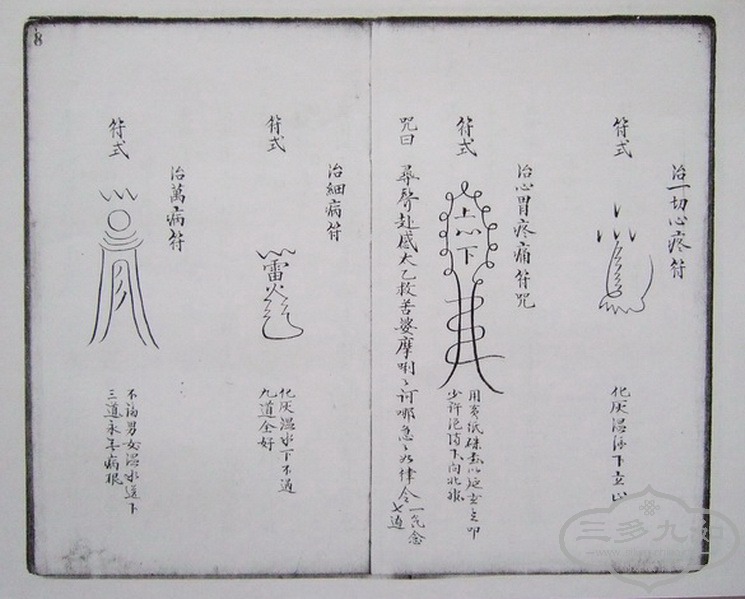 治一切心疼符
符式
化灰温湯下立止
治心胃疼痛符咒
符式
上心下
用黃紙硃
少許
下向北
咒曰 尋聲赴感太乙救苦婆摩唎々訶哪急々如律令一气念
七遍
治細病符
符式
雷火
化灰温水下不過
九道全好
治萬病符
符式
不論男女温水送下
三道永无病根
8
三多九如